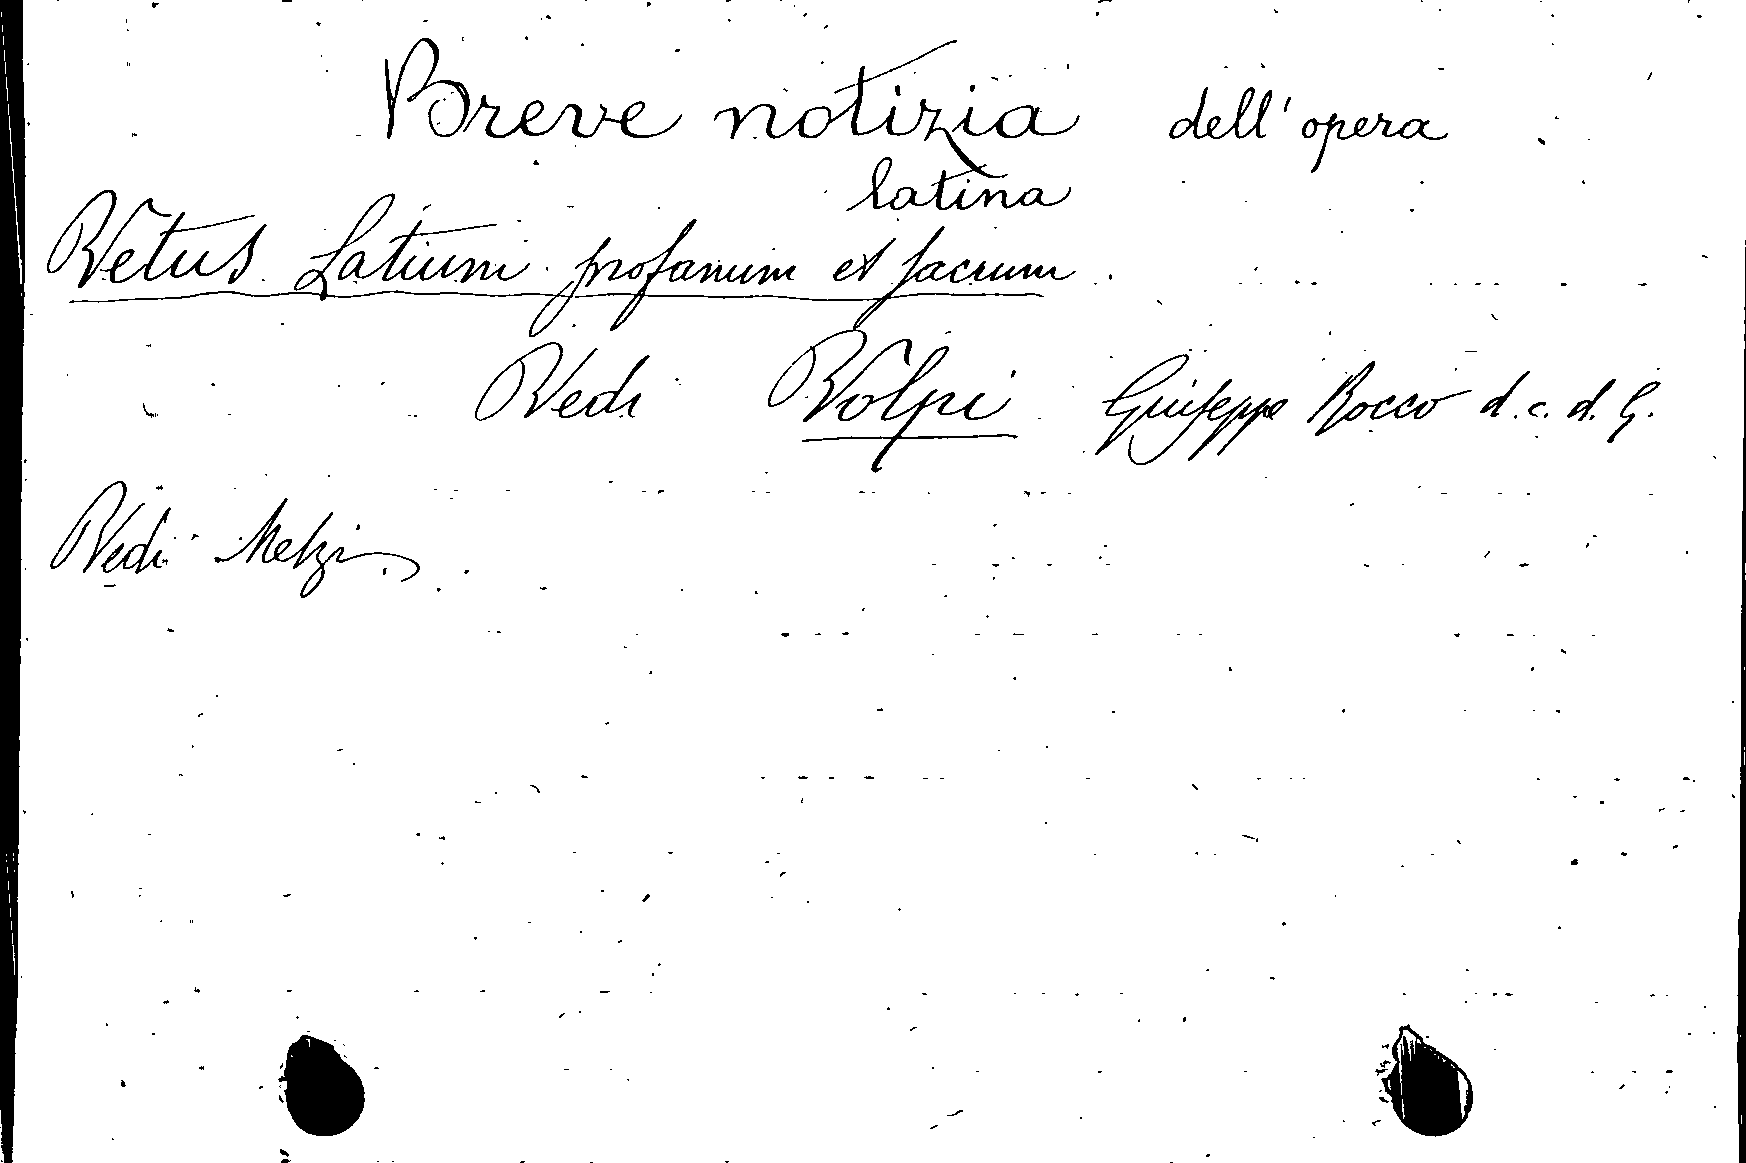 Breve notizia dell'opera
latina
Vetus Latium profanum et sacrum.
Vedi Volpi Giuseppe Rocco d. c. d. G.
Vedi Melzi.